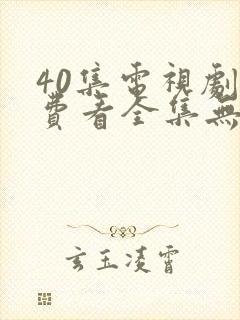 40集電視劇
費看全集無
玄玉凌霄